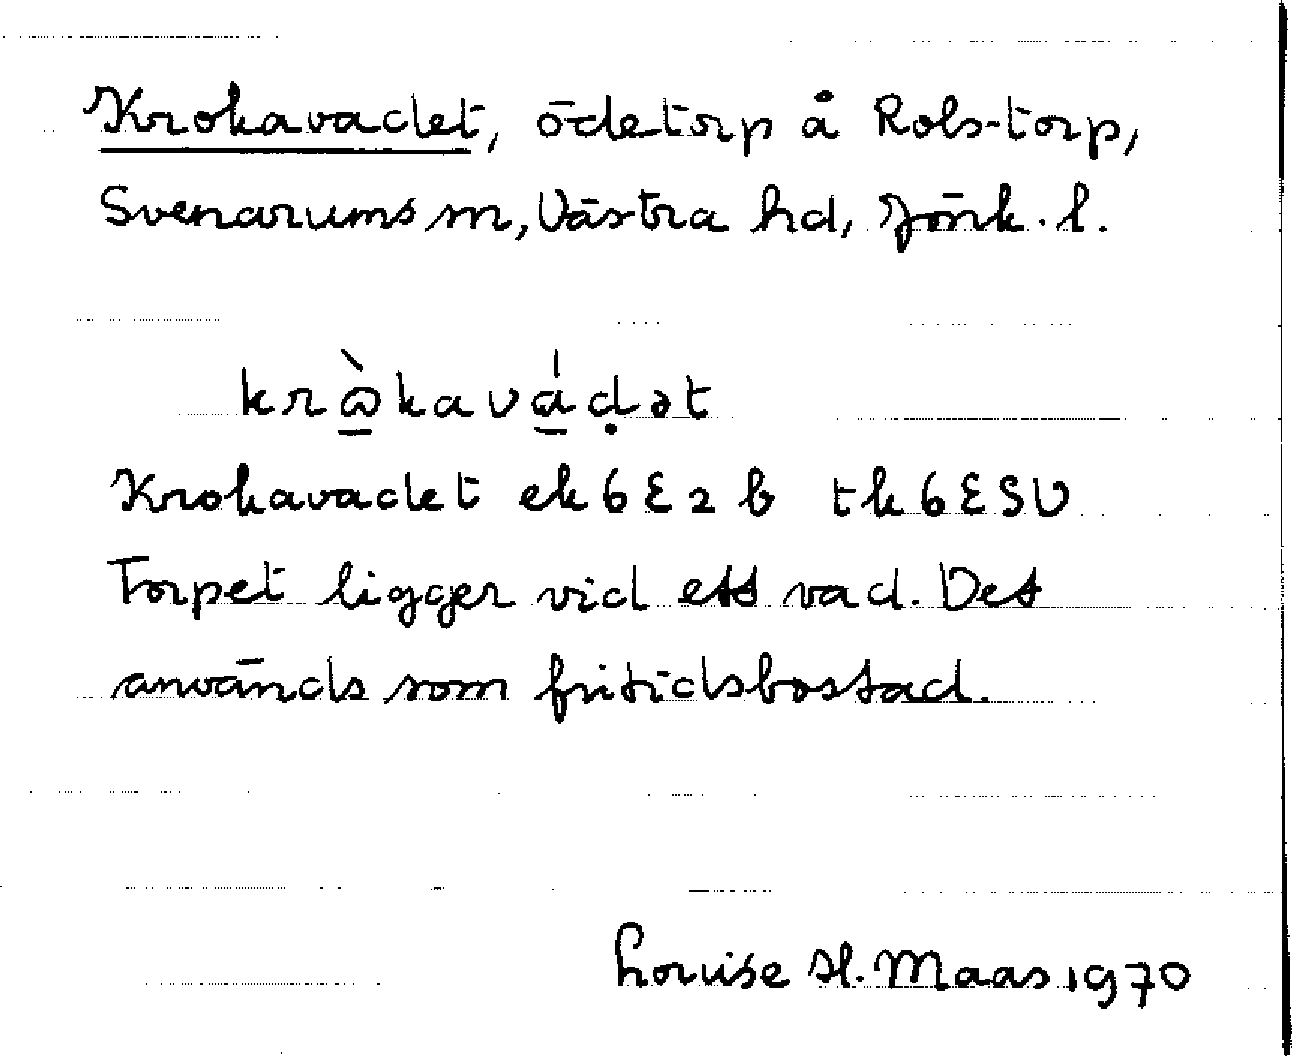 Krokavadet, ödetorp å Rolstorp,
Svenarums sn, Västra hd, Jönk. l.
krὼ̠kavá̠ḍət
Krokavadet ek 6E2b tk 6ESV
Torpet ligger vid ett vad. Det
används som fritidsbostad.
Louise H. Maas 1970